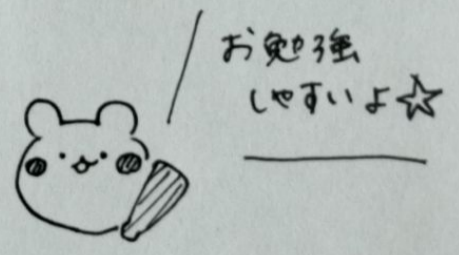 お勉強
しやすいよ☆